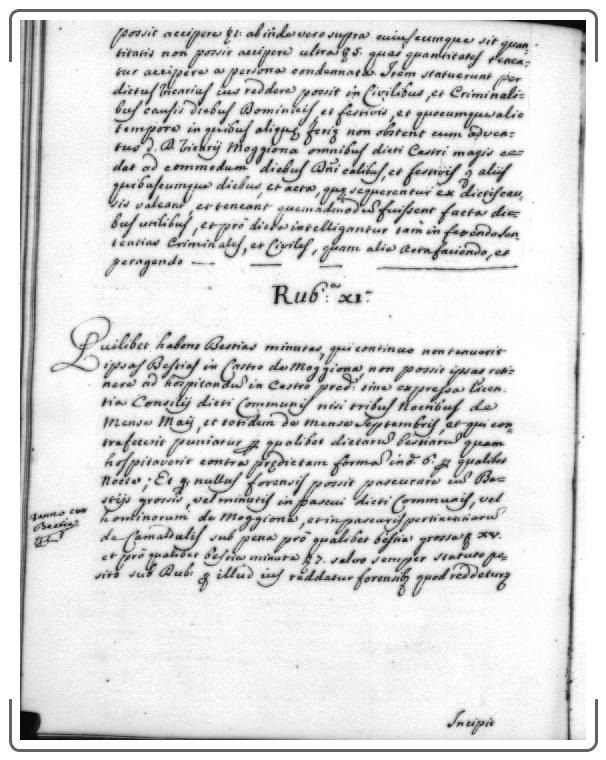 possit accipere ƺ1: ab inde vero supra cuiuscumque sit quan-
titatis non possit accipere ultra ƺ5. quas quantitates tenea-
tur accipere a persona condennata. Item statuerunt per
dictus Vicarius ius reddere possit in Civilibus, et Criminali-
bus causis diebus Dominicis et festivis, et quocumque alio
tempore in quibus aliquę ferię non obstent cum adven-
tus d. D. Vicarij Moggiona omnibus dicti Castri magis ce-
dat ad commodum diebus Dñicalibus, et festivis q̃ alijs
quibuscumque diebus, et acta, quę sequerentur ex dictis cau-
sis valeant, et teneant quemadmodũ fuissent facta die-
bus utilibus, et pro dicto intelligantur tam in ferendo Sen
tentias Criminales, et Civiles, quam alia Acta faciendo, et
peragendo —
Rub.ᶜᵃ XI.ᵃ
Quilibet habens Bestias minutas, qui continuo non tenuerit
ipsas Bestias in Castro de Moggiona non possit ipsas reti-
nere ad hospitandũ in Castro pred.º sine expressa licen-
tia Consilij dicti Communis nisi tribus Noctibus de
Mense Maij, et totidem de mense Septembris, et qui con-
trafecerit puniatur ꝑ qualibet dictarũ bestiarũ quam
hospitaverit contra prędictam formã in ꝑ qualibet
Nocte; Et q̃ nullus forensis possit pascurare cũ Be-
stijs grossis, vel minutis in pascui dicti Communis, vel
hominorum de Moggiona, et in pascuis pertinentiarũ
de Camaldulis sub pena prò qualibet bestia grossa ƺ XV.
et prò qualibet bestia minuta ƺ7. salvo semper statuto po-
sito sub Rub: q̃ illud ius reddatur forensibꝫ quod redditurꝫ
Danno con
Bestie
Incipit